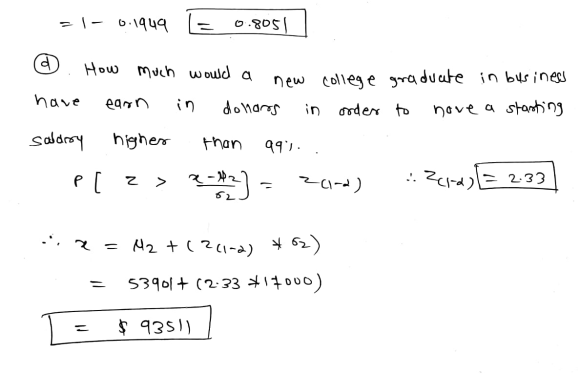 = 1 - 0.1949 = 0.8051
(d) How much would a new college graduate in business
have earn in dollars in order to have a starting
saldary higher than 99%.
P[ Z > (x-μ2)/σ2 ] = Z(1-α) ∴ Z(1-α) = 2.33
∴ x = μ2 + (Z(1-α) * σ2)
= 53901 + (2.33 * 17000)
= $ 93511